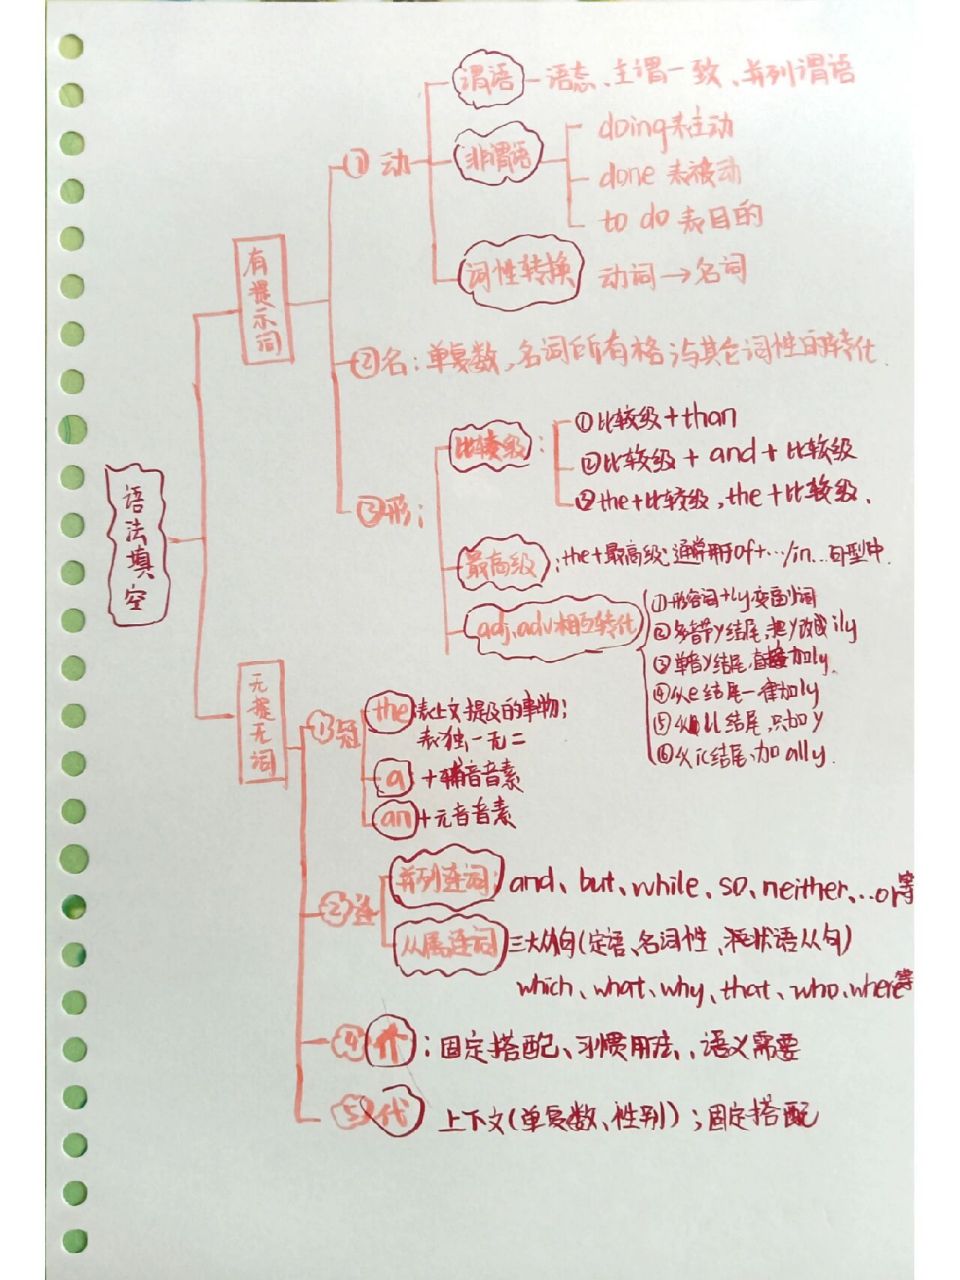 语法填空
有提示词
①动
谓语-语态、主谓一致、并列谓语
非谓语
doing表主动
done 表被动
to do 表目的
词性转换 动词→名词
②名:单复数,名词所有格与其它词性的转化.
③形:
比较级:
①比较级+than
②比较级+and+比较级
③the+比较级,the+比较级.
最高级:the+最高级;通常用于of+…/in…句型中.
adj、adv相互转化
①形容词+ly变副词
②多音节y结尾,把y改成ily
③单音y结尾,直接加ly.
④以e结尾一律加ly
⑤以ll结尾,只加y
⑥以ic结尾,加ally.
无提示词
①冠
the 表上文提及的事物;
表独一无二
a +辅音音素
an +元音音素
②连
并列连词:and、but、while、so、neither、…or等
从属连词 三大从句(定语、名词性、状语从句)
which、what、why、that、who、where等
④介:固定搭配、习惯用法、语义需要
⑤代 上下文(单复数、性别);固定搭配